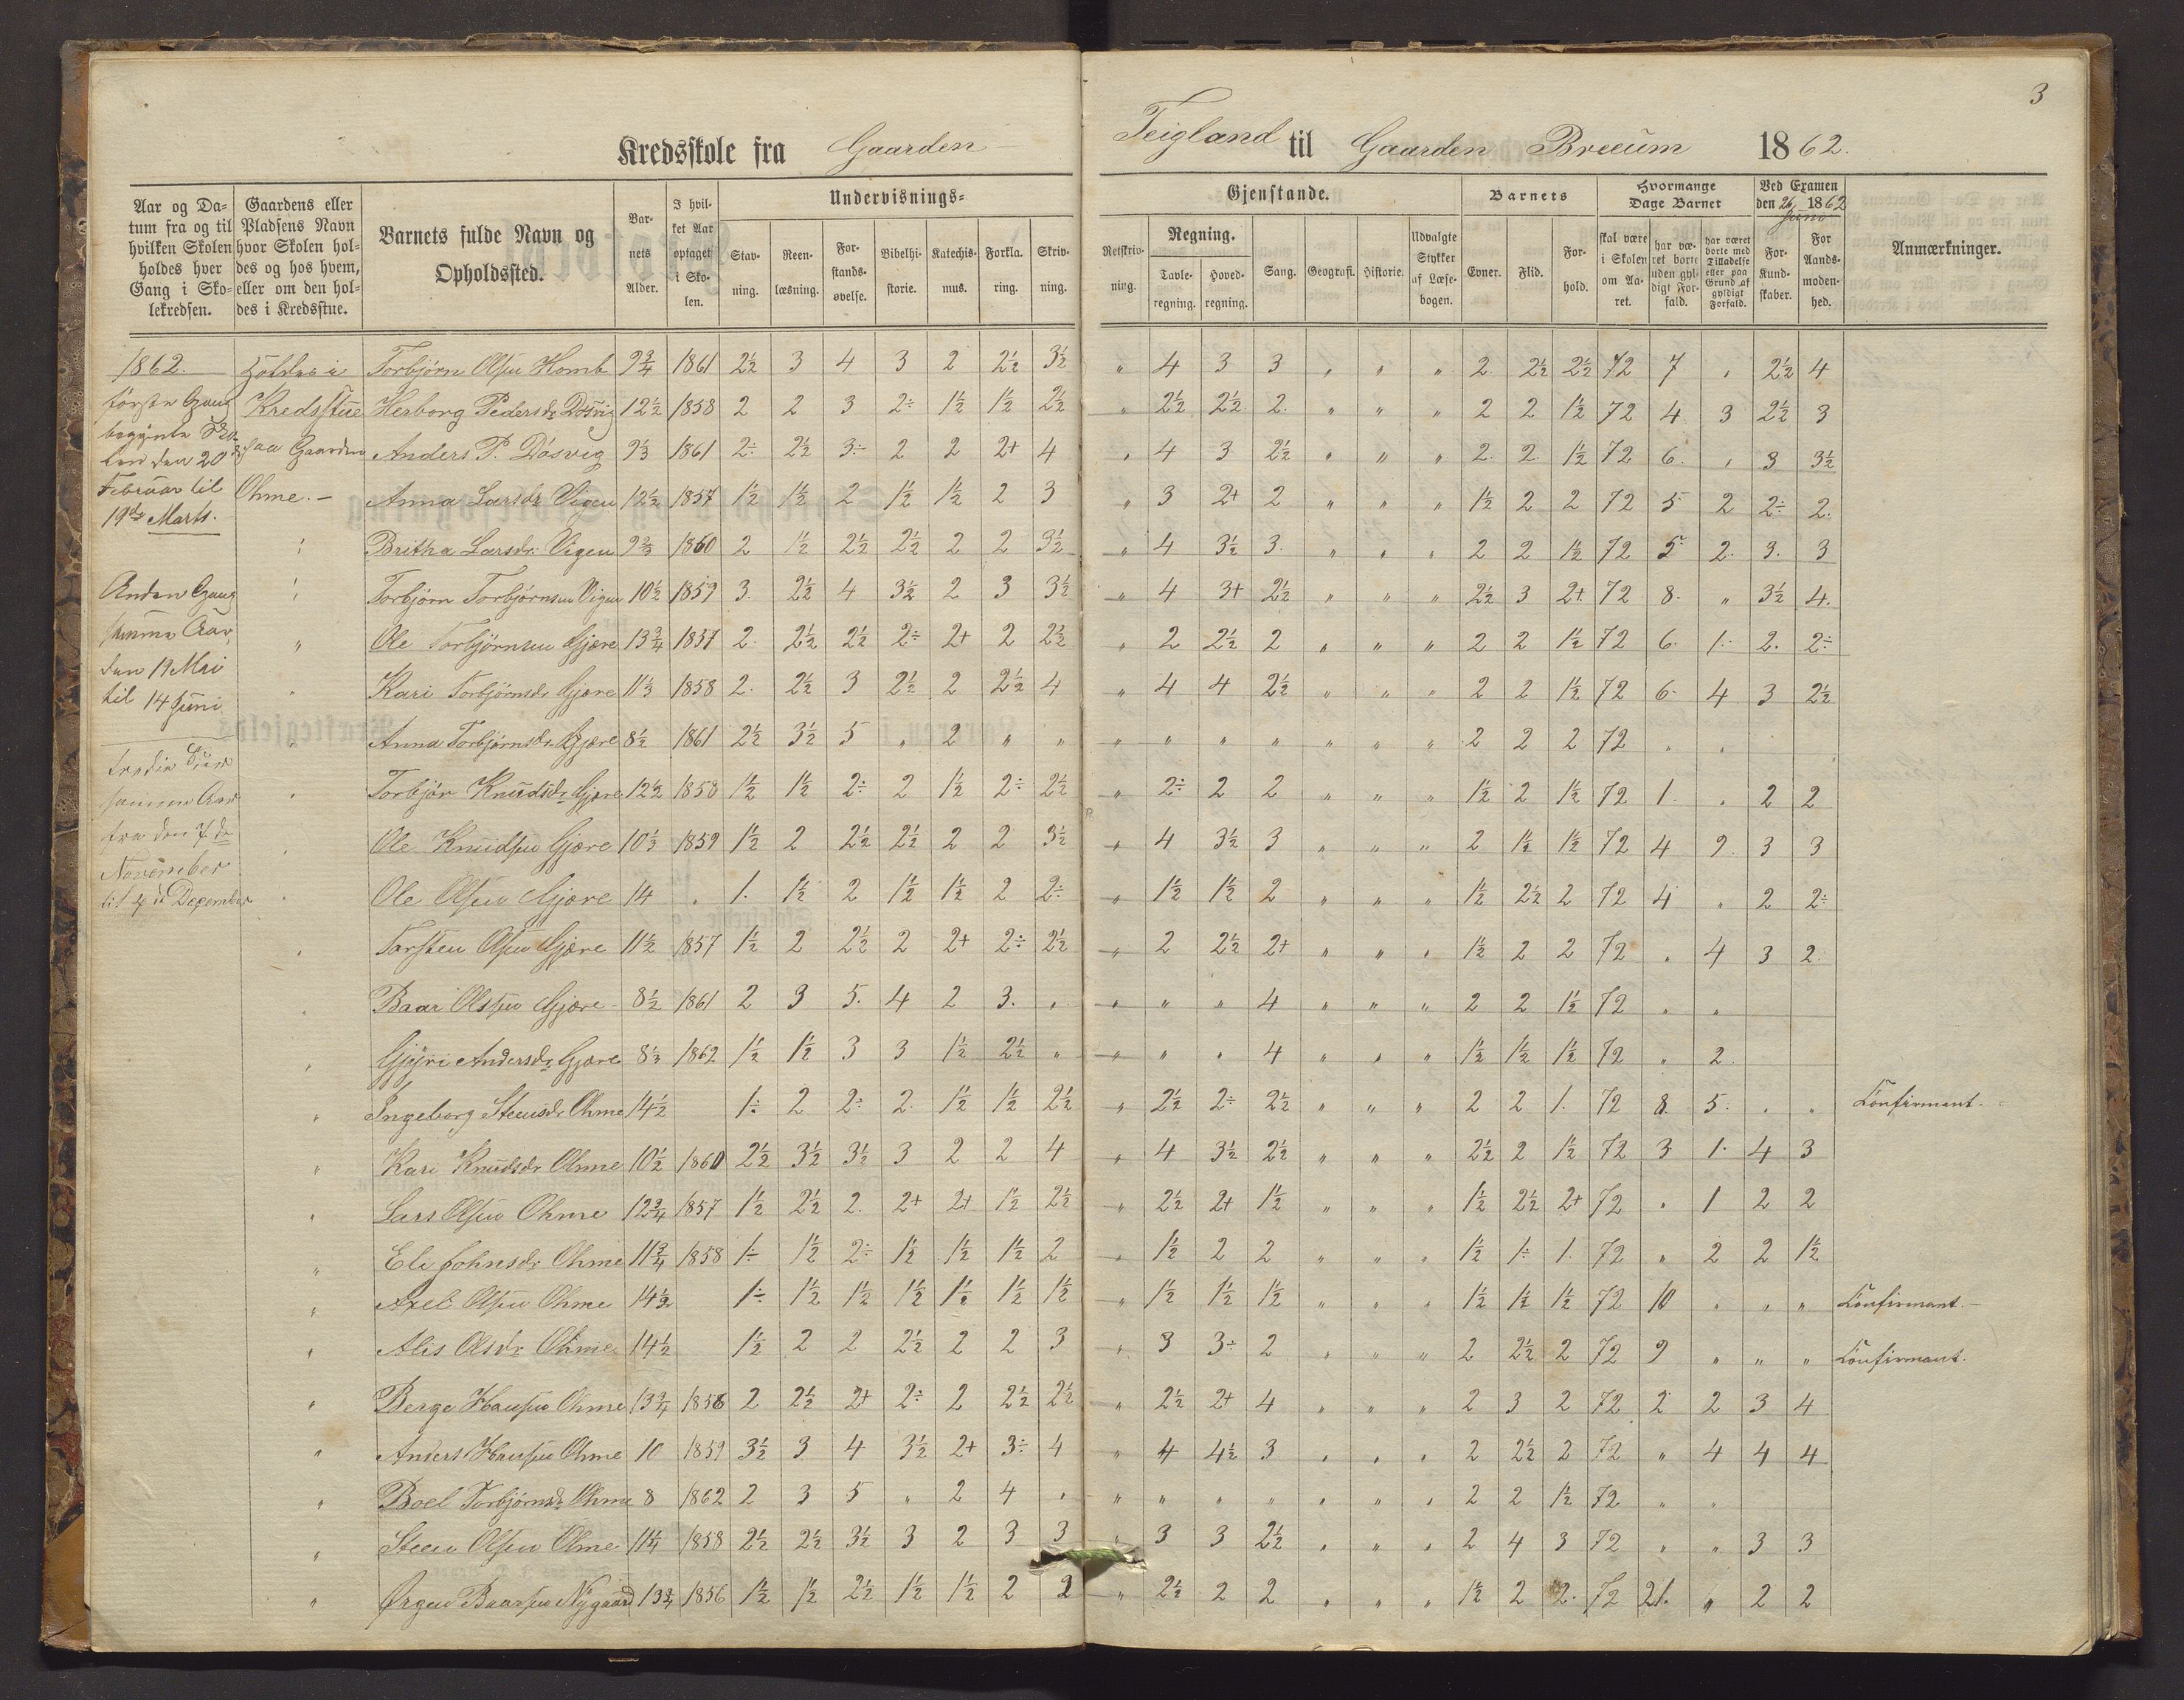 3
Kredsskole fra Gaarden Teigland til Gaarden Breeum 1862.
Aar og Datum fra og til hvilken Skolen holdes hver Gang i Skolekredsen.
Gaardens eller Pladsens Navn hvor Skolen holdes og hos hvem, eller om den holdes i Kredsstue.
Barnets fulde Navn og Opholdssted.
Barnets Alder.
I hvilket Aar optaget i Skolen.
Undervisnings-Gjenstande.
Stavning. Reenlæsning. Forstandsøvelse. Bibelhistorie. Katechismus. Forklaring. Skrivning.
Retskrivning. Regning. Tavleregning. Hovedregning. Sang. Geografi. Historie. Udvalgte Stykker af Læsebogen.
Barnets Evner. Flid. Forhold.
Hvormange Dage Barnet skal være i Skolen om Aaret. har været borte uden gyldigt Forfald. har været borte med Tilladelse eller paa Grund af gyldigt Forfald.
Ved Examen den 26 Juno 1862 For Kundskaber. For Aandsmodenhed.
Anmærkninger.
1862.
første Gang
begynte
den 20de
Februar til
19de Marts.
Anden Gang
samme Aar,
den 19 Mai
til 14 Juni
tredie
samme Aar
fra den 7 de
November
til 4de December
Holdes i
Kredsstue
paa Gaarden
Ohme. -
Torbjørn Olsen Homb 9 3/4 1861 2½ 3 4 3 2 2½ 3½ " 4 3 3 " " " 2. 2½ 2½ 72 7 " 2½ 4
Herborg Pedersdr Døsvig 12½ 1858 2 2 3 2÷ 1½ 1½ 2½ " 2½ 2½ 2. " " " 2 2 1½ 72 4 3 2½ 3
Anders P. Døsvig 9 1/3 1861 2÷ 2½ 3÷ 2 2 2+ 4 " 4 3 2½ " " " 2. 2. 1½ 72 6. " 3 3½
Anna Larsdr Vigen 12½ 1857 1½ 1½ 2 1½ 1½ 2 3 " 3 2+ 2 " " " 1½ 2 2 72 5 2 2÷ 2.
Britha Larsdr Vigen 9 2/3 1860 2 1½ 2½ 2½ 2 2 3½ " 4 3½ 3. " " " 2 2 1½ 72 5 2. 3. 3
Torbjørn Torbjørnsen Vigen 10½ 1859 3. 2½ 4 3½ 2 3 3½ " 4 3+ 2½ " " " 2½ 3 2+ 72 8. " 3½ 4.
Ole Torbjørnsen Gjære 13 3/4 1857 2. 2½ 2½ 2÷ 2+ 2 2½ " 2 2½ 2 " " " 2 2 1½ 72 6. 1. 2. 2÷
Kari Torbjørnsdr Gjære 11 1/3 1858 2. 2½ 3 2½ 2 2½ 4 " 4 4 2½ " " " 2 2 1½ 72 6. 4 3 2½
Anna Torbjørnsdr Gjære 8½ 1861 2½ 3½ 5 " 2 " " " " " " " " " 2 2 2 72 " "
Torbjør Knudsdr Gjære 12½ 1858 1½ 1½ 2÷ 2 1½ 2÷ 2½ " 2÷ 2 2 " " " 1½ 2 1½ 72 1. " 2 2
Ole Knudsen Gjære 10 1/3 1859 1½ 2 2½ 2½ 2 2 3½ " 4 3½ 3 " " " 2 1½ 1½ 72 4 9. 3 3
Ole Olsen Gjære 14 " 1. 1½ 2 1½ 1½ 2 2÷ " 1½ 1½ 2 " " " 1½ 2½ 2 72 4 " 2 2÷
Torsten Olsen Gjære 11½ 1857 1½ 2 2½ 2 2+ 2÷ 2½ " 2 2½ 2+ " " " 1½ 2 2 72 " 4 3 2.
Baar Olsen Gjære 8½ 1861 2 3 5. 4 2 3. " " " " 4 " " " 2 2 1½ 72 " "
Gjyri Andersdr Gjære 8 1/3 1862 1½ 1½ 3 3 1½ 2½ " " " " 4 " " " 1½ 1½ 1½ 72 " 2.
Ingeborg Steensdr Ohme 14½ 1÷ 2 2÷ 2. 1½ 1½ 2½ " 2½ 2÷ 2½ " " " 2 2 1. 72 8. 5. " " Confirmant.
Kari Knudsdr Ohme 10½ 1860 2½ 3½ 3½ 3 2 2 4 " 4 3½ 2½ " " " 2½ 2 1½ 72 3 1. 4 3
Lars Olsen Ohme 12 3/4 1857 1½ 2½ 2. 2+ 2+ 1½ 2½ " 2½ 2+ 1½ " " " 1½ 2½ 2+ 72 " 1 2 2
Eli Johnsdr Ohme 11 3/4 1858 1÷ 1½ 2÷ 1½ 1½ 1½ 2 " 1½ 2 2 " " " 1½ 1÷ 1. 72 " 2 2 1½
Axel Olsen Ohme 14½ 1÷ 1½ 1½ 1½ 1½ 1½ 1½ " 1½ 1½ 1½ " " " 1½ 1½ 1½ 72 10 " " " Confirmant.
Alis Olsdr Ohme 14½ 1½ 2 2 2½ 2 2 3 " 3 3÷ 2 " " " 2 2½ 2 72 9 " " " Confirmant.
Berge Hansen Ohme 13 3/4 1856 2 2½ 2+ 2÷ 2 2½ 2½ " 2½ 2+ 4 " " " 2 3 2 72 2 2 3 4
Anders Hansen Ohme 10 1859 3½ 3 4 3½ 2+ 3÷ 4 " 4 4½ 3 " " " 2 2½ 2 72 " 4 4 4
Boel Torbjørnsdr Ohme 8 1862 2 3 5 " 2 4 " " " " " " " " 2 2 1½ 72 " "
Steen Olsen Ohme 11¼ 1858 2½ 2½ 3½ 3 2 3 3 " 3 3 2½ " " " 2 4 3 72 " " 3 3
Ørgen Baarsen Nygaard 13 3/4 1856 1½ 1½ 2½ 1½ 1½ 2 2 " 2½ 2 2 " " " 1½ 2 2. 72 21. " 2 2